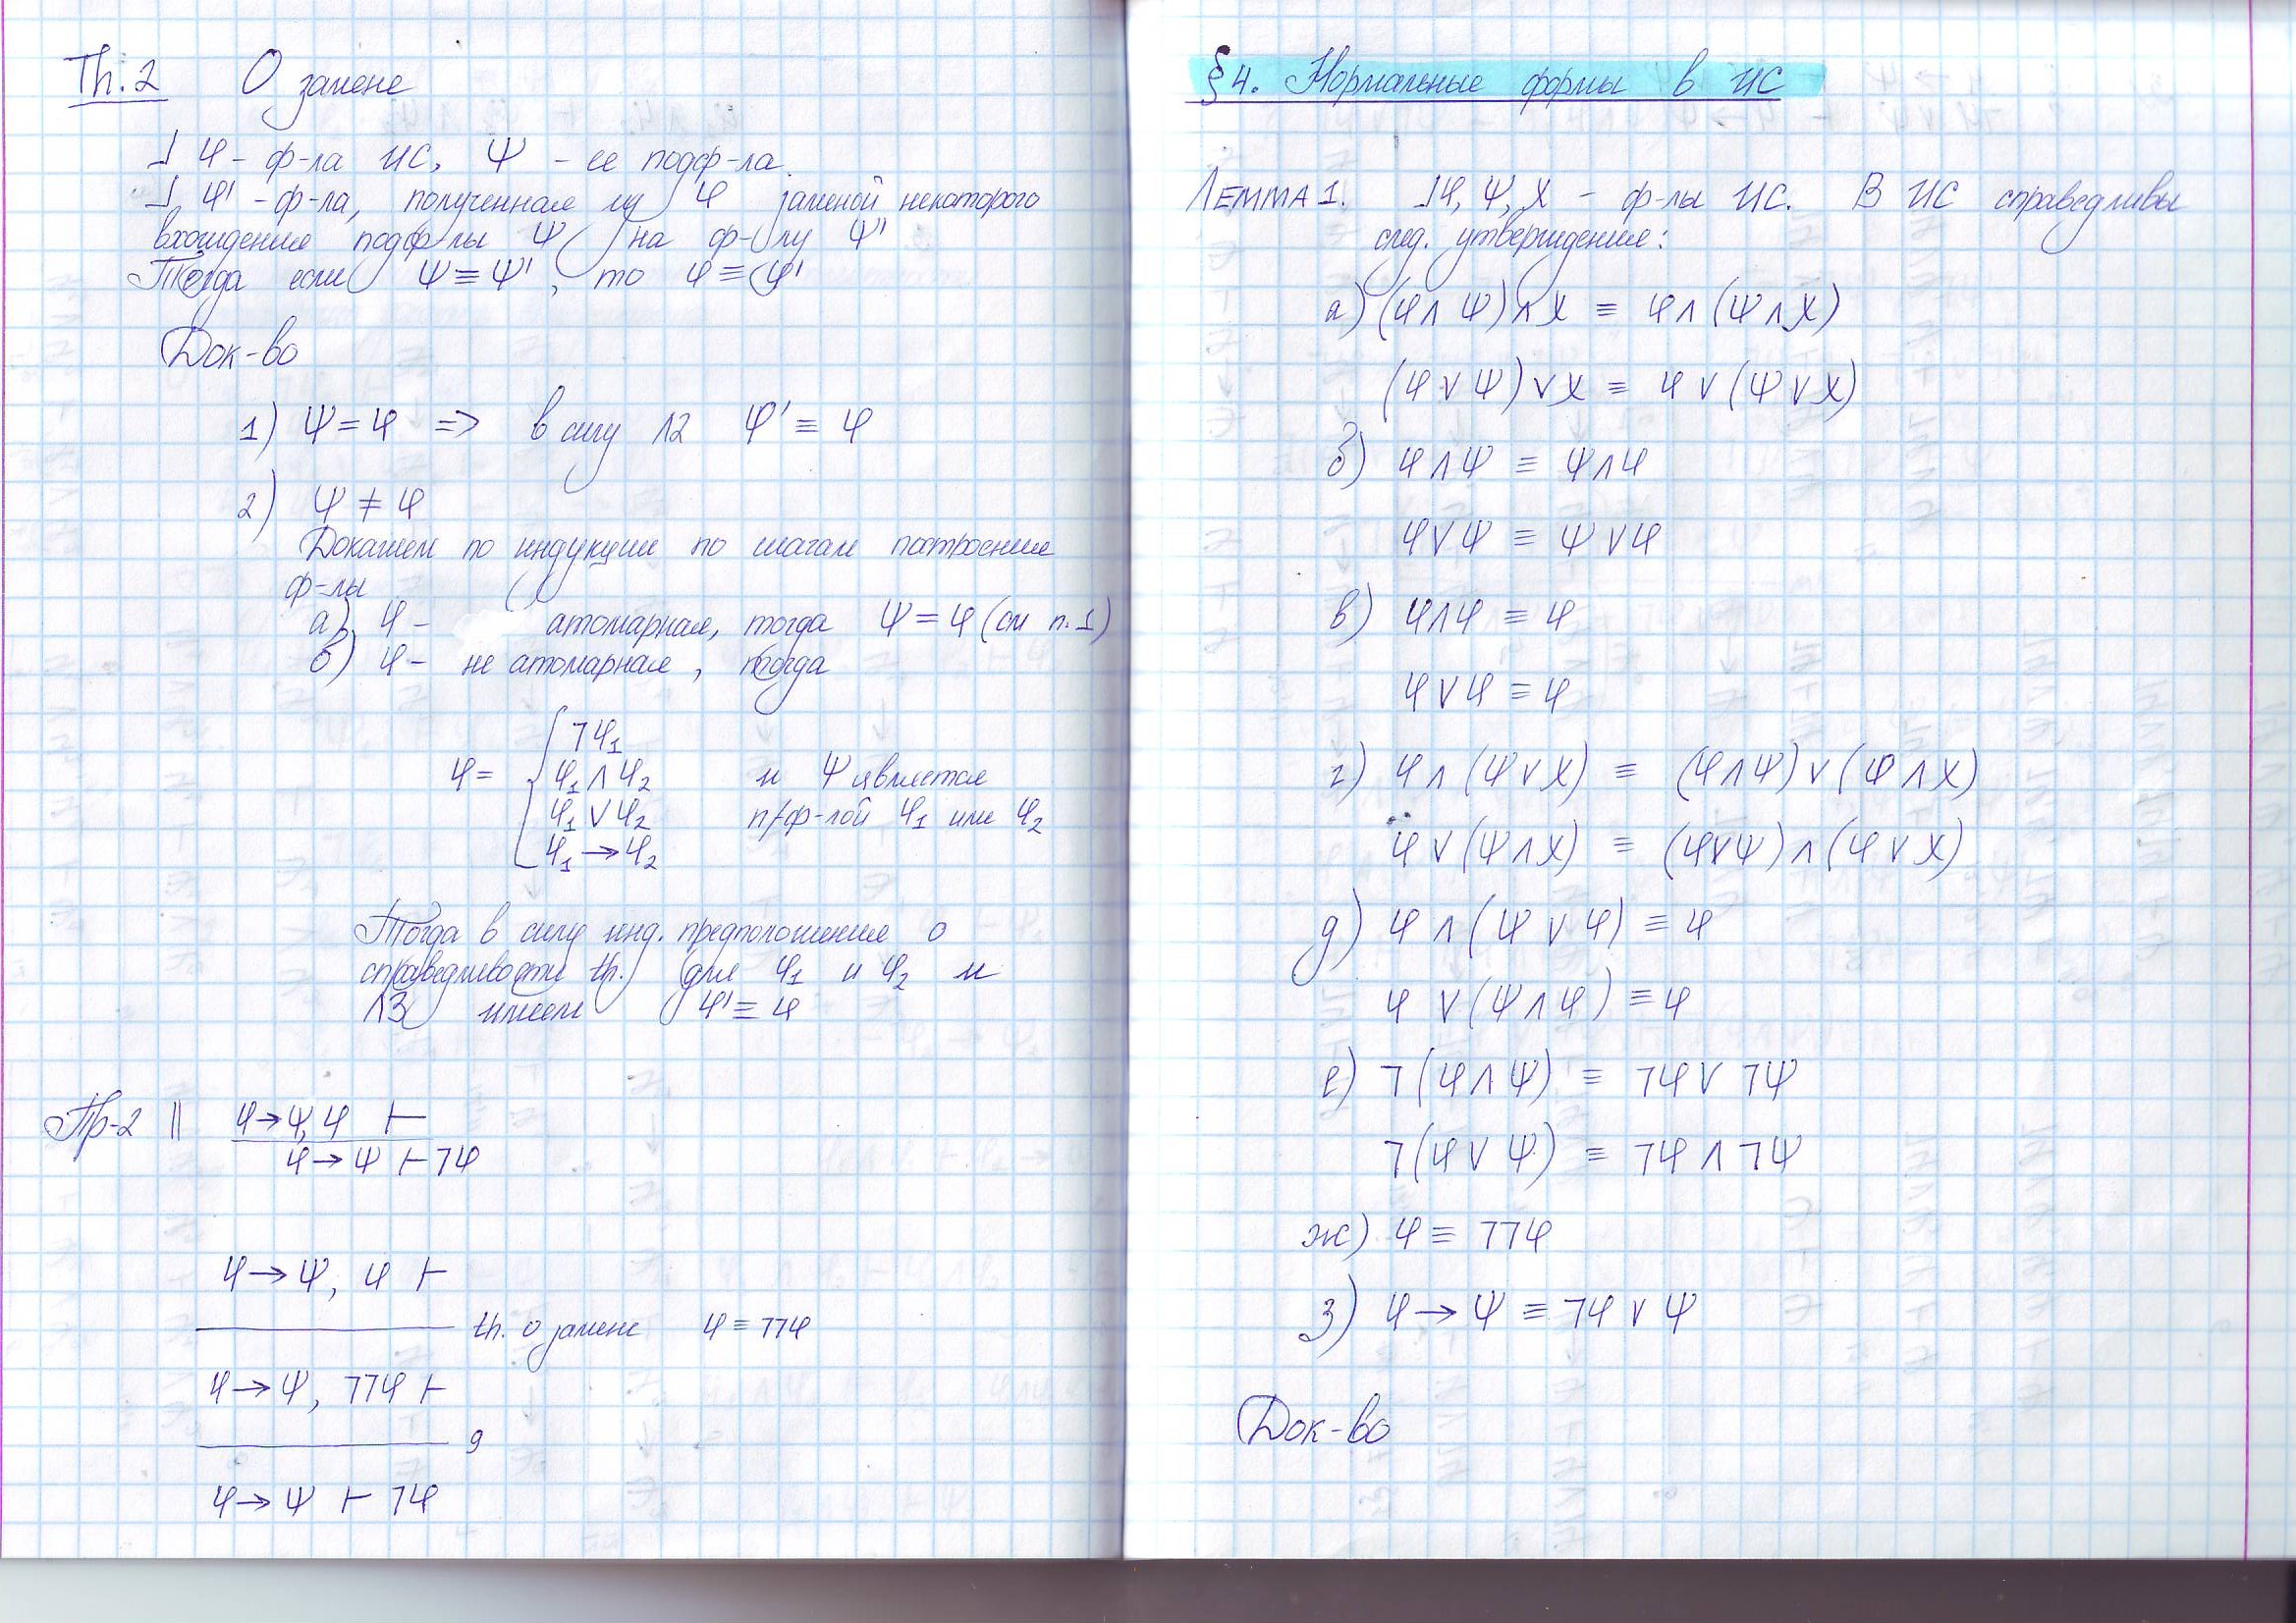 Th.2 О замене
⅃ φ - ф-ла ИС, ψ - ее подф-ла.
⅃ φ' - ф-ла, полученная из φ заменой некоторого
вхождения подф-лы ψ на ф-лу ψ'
Тогда если ψ ≡ ψ', то φ ≡ φ'
Док-во
1) ψ = φ => в силу Л2 φ' ≡ φ
2) ψ ≠ φ
Докажем по индукции по шагам построения
ф-лы
а) φ - атомарная, тогда ψ = φ (см п.1)
б) φ - не атомарная, тогда
¬φ₁
φ = { φ₁ ∧ φ₂ и ψ является
φ₁ ∨ φ₂ п/ф-лой φ₁ или φ₂
φ₁ → φ₂
Тогда в силу инд. предположения о
справедливости th. для φ₁ и φ₂ и
Л3 имеем φ' ≡ φ
Пр-2 || φ→ψ, φ ⊢
φ→ψ ⊢ ¬φ
φ→ψ, φ ⊢
th. о замене φ ≡ ¬¬φ
φ→ψ, ¬¬φ ⊢
9
φ→ψ ⊢ ¬φ
§4. Нормальные формы в ИС
ЛЕММА 1. ⅃ φ, ψ, χ - ф-лы ИС. В ИС справедливы
след. утверждения:
а) (φ ∧ ψ) ∧ χ ≡ φ ∧ (ψ ∧ χ)
(φ ∨ ψ) ∨ χ ≡ φ ∨ (ψ ∨ χ)
б) φ ∧ ψ ≡ ψ ∧ φ
φ ∨ ψ ≡ ψ ∨ φ
в) φ ∧ φ ≡ φ
φ ∨ φ ≡ φ
г) φ ∧ (ψ ∨ χ) ≡ (φ ∧ ψ) ∨ (φ ∧ χ)
φ ∨ (ψ ∧ χ) ≡ (φ ∨ ψ) ∧ (φ ∨ χ)
д) φ ∧ (ψ ∨ φ) ≡ φ
φ ∨ (ψ ∧ φ) ≡ φ
е) ¬(φ ∧ ψ) ≡ ¬φ ∨ ¬ψ
¬(φ ∨ ψ) ≡ ¬φ ∧ ¬ψ
ж) φ ≡ ¬¬φ
з) φ → ψ ≡ ¬φ ∨ ψ
Док-во